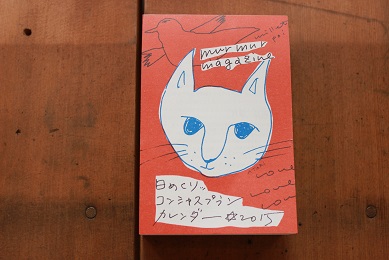 murmur
magazine
日めくりッ
コンシャスプラン
カレンダー ☆2015
love
love
love